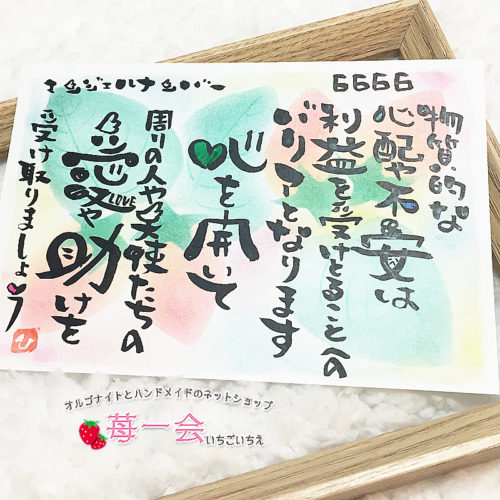 エンジェルナンバー
6666
物質的な
心配や不安は
利益を受けとることへの
バリアとなります
心を開いて
周りの人や天使たちの
愛や
LOVE
助けを
受け取りましょう
ひ
オルゴナイトとハンドメイドのネットショップ
苺一会
いちごいちえ